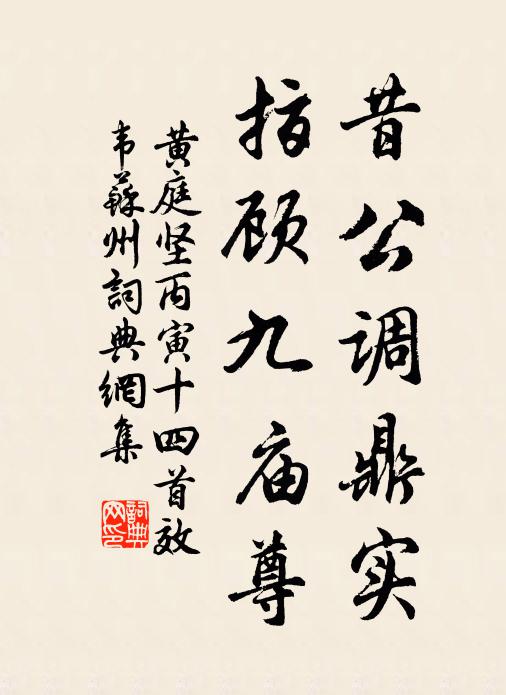 昔公调鼎实
指顾九庙尊
黄庭坚丙寅十四首效
韦蘇州詞典網集
詞典
网印